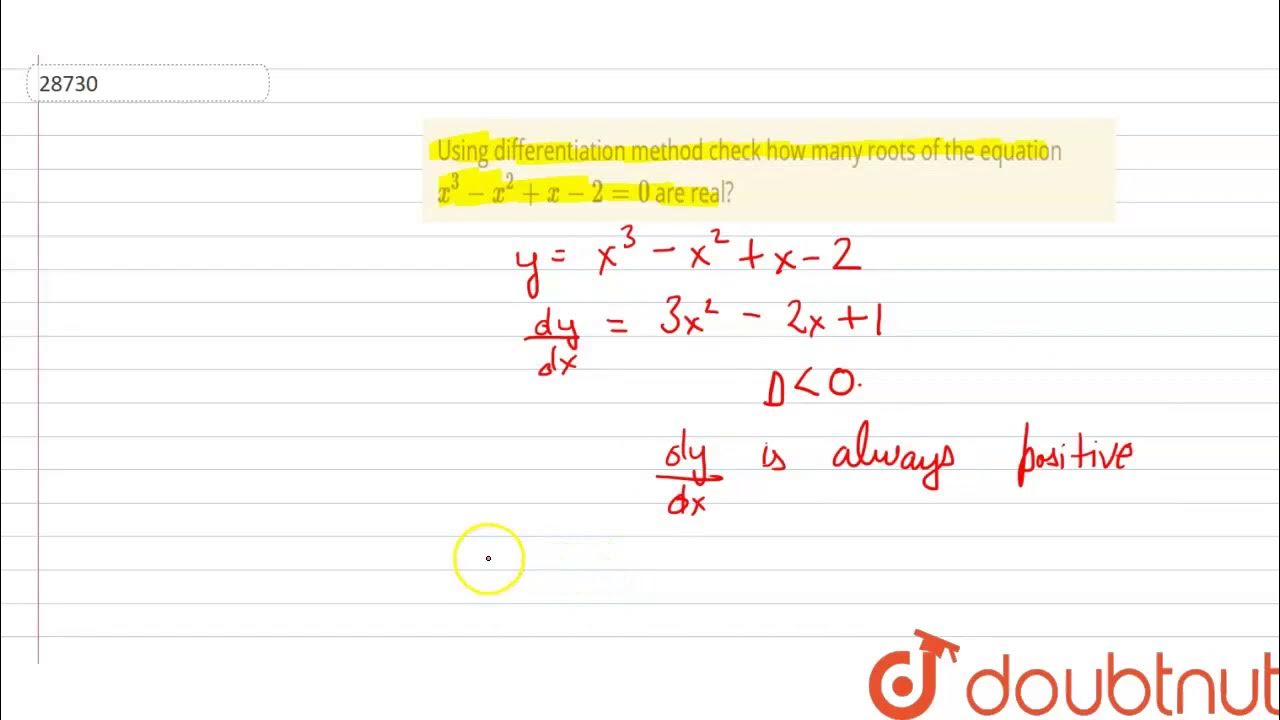 28730
Using differentiation method check how many roots of the equation
x³ − x² + x − 2 = 0 are real?
y = x³ − x² + x − 2
dy/dx = 3x² − 2x + 1
D < 0.
dy/dx is always positive
doubtnut